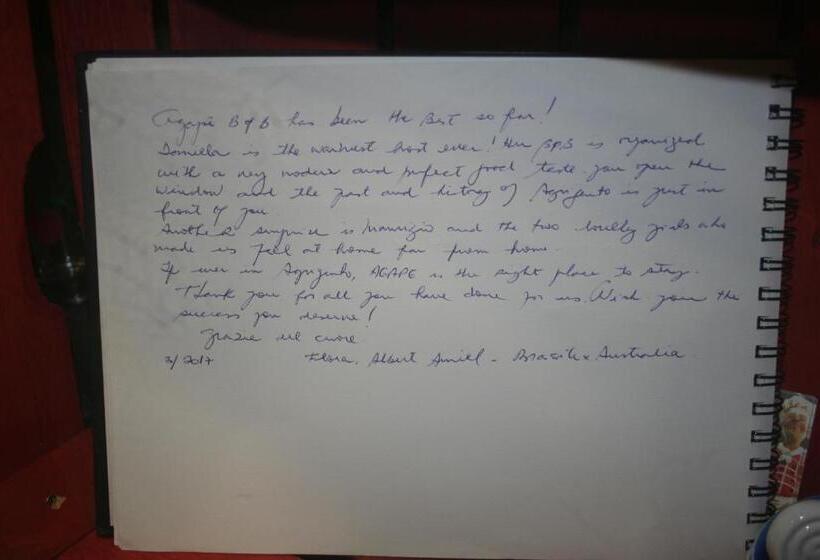 Agapè B&B has been the Best so far!
Daniela is the warmest host ever! Her B&B is organized
with a very modern and perfect good taste. you open the
window and the past and history of Agrigento is just in
front of you.
Another surprise is Maurizio and the two lovely girls who
made us feel at home far from home.
If ever in Agrigento, AGAPE is the right place to stay.
Thank you for all you have done for us. Wish you the
success you deserve!
Grazie del cuore
3/2017 Flora, Albert Amiel - Brasile x Australia